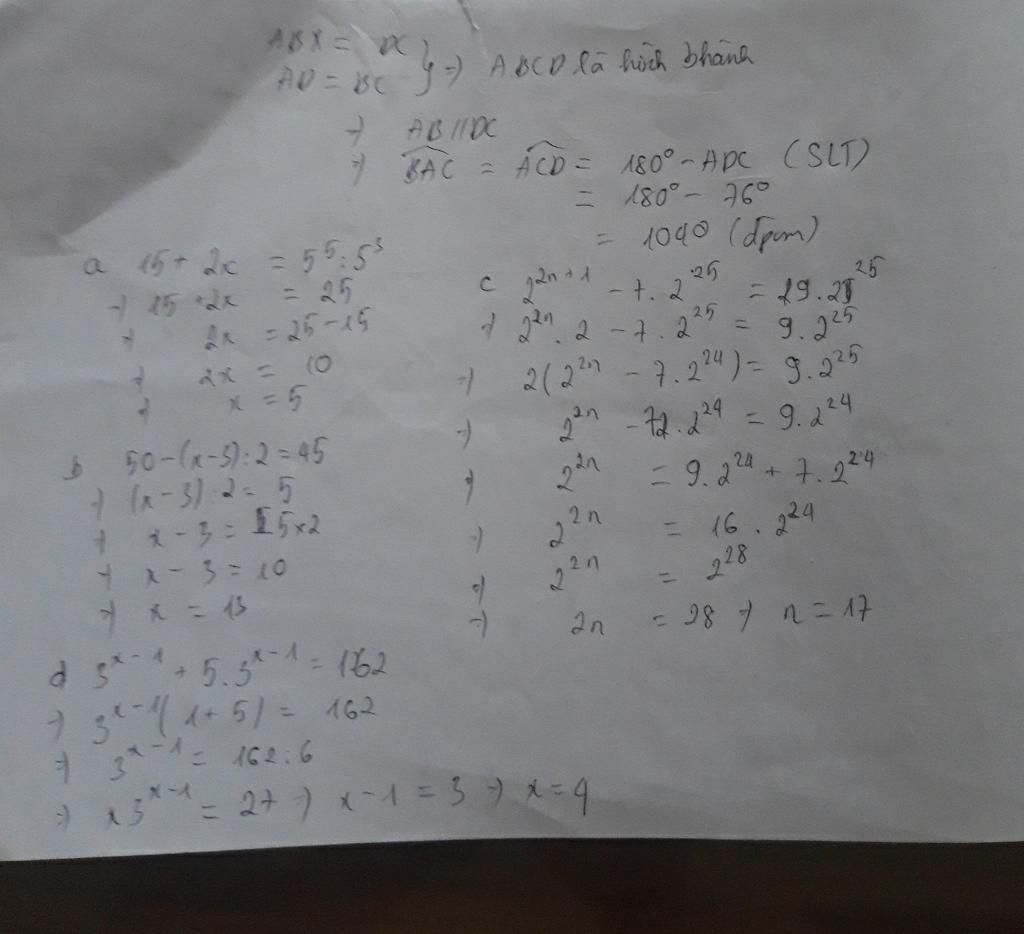 ABX = DC
AD = BC } => ABCD là hình bhành
=> AB // DC
=> BAC = ACD = 180° - ADC (SLT)
= 180° - 76°
= 1040 (đpcm)
a 15 + 2x = 5⁵ : 5³
=> 15 + 2x = 25
=> 2x = 25 - 15
=> 2x = 10
=> x = 5
b 50 - (x - 3) : 2 = 45
=> (x - 3) : 2 = 5
=> x - 3 = 5 x 2
=> x - 3 = 10
=> x = 13
c 2²ⁿ⁺¹ - 7 . 2²⁵ = 9 . 2²⁵
=> 2²ⁿ . 2 - 7 . 2²⁵ = 9 . 2²⁵
=> 2(2²ⁿ - 7 . 2²⁴) = 9 . 2²⁵
=> 2²ⁿ - 7 . 2²⁴ = 9 . 2²⁴
=> 2²ⁿ = 9 . 2²⁴ + 7 . 2²⁴
=> 2²ⁿ = 16 . 2²⁴
=> 2²ⁿ = 2²⁸
=> 2n = 28 => n = 17
d 3ˣ⁻¹ + 5 . 3ˣ⁻¹ = 162
=> 3ˣ⁻¹(1 + 5) = 162
=> 3ˣ⁻¹ = 162 : 6
=> x3ˣ⁻¹ = 27 => x - 1 = 3 => x = 4